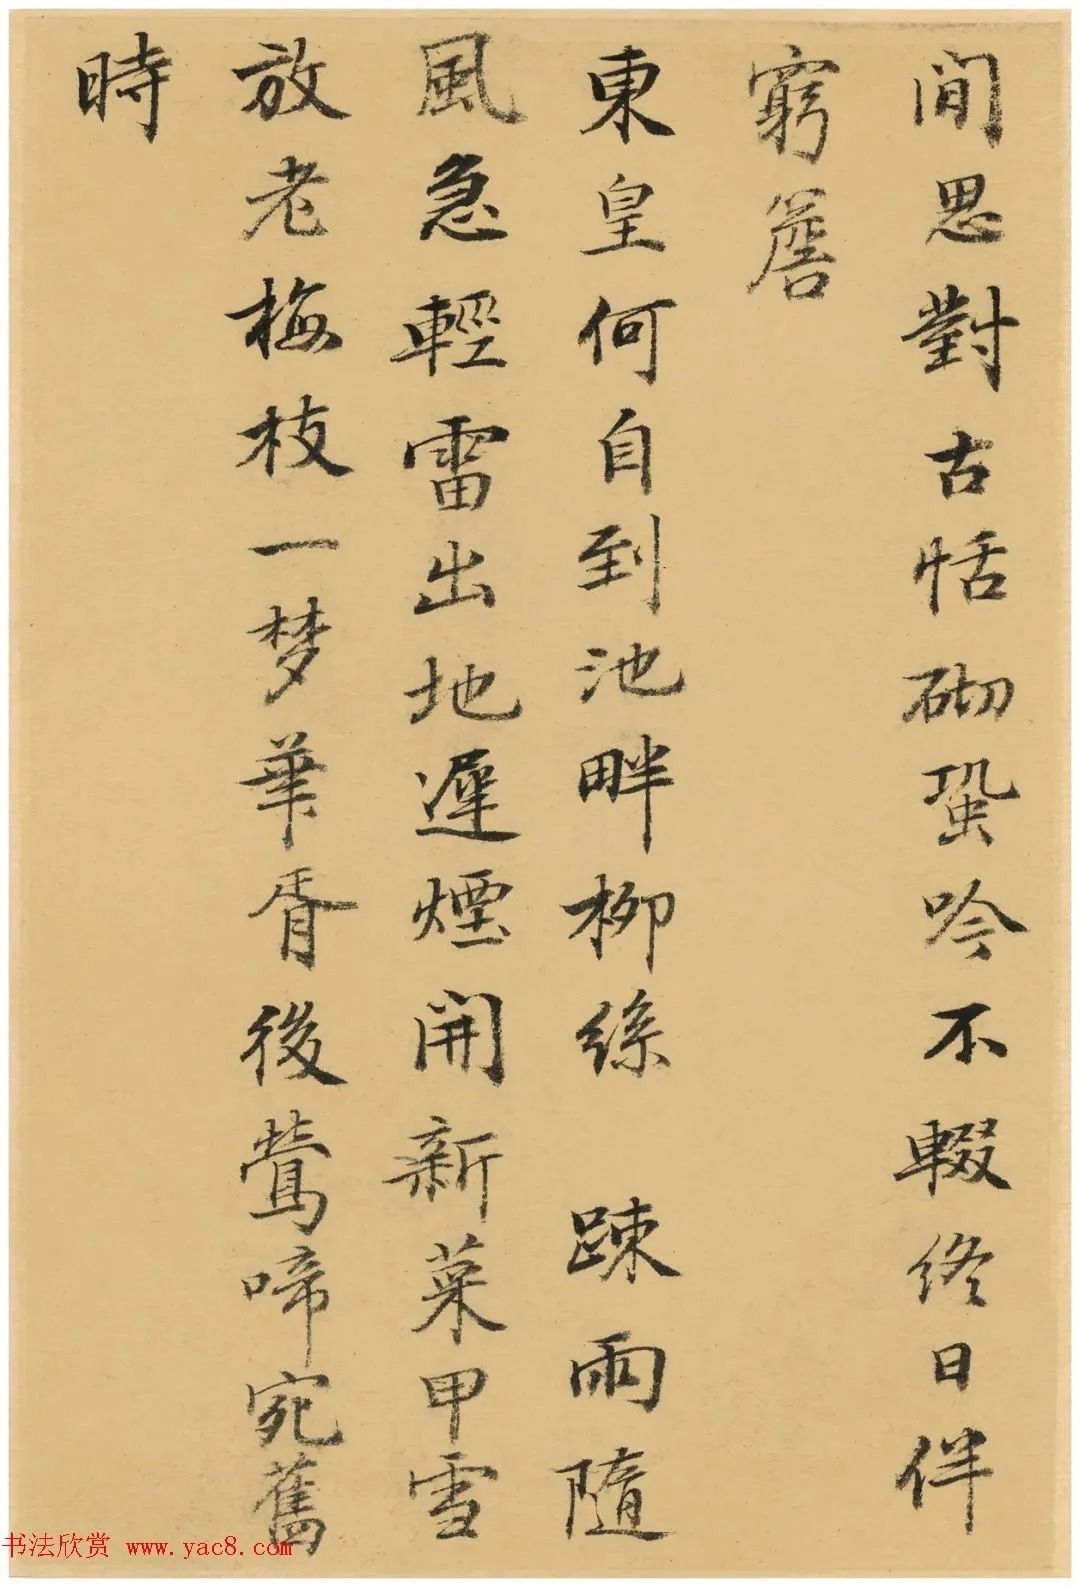 閒思對古恬砌蛩吟不輟終日伴
窮簷
東皇何自到池畔柳絲 踈雨隨
風急輕雷出地遲煙開新菜甲雪
放老梅枝一梦華胥後鶯啼宛舊
時
书法欣赏 www.yac8.com